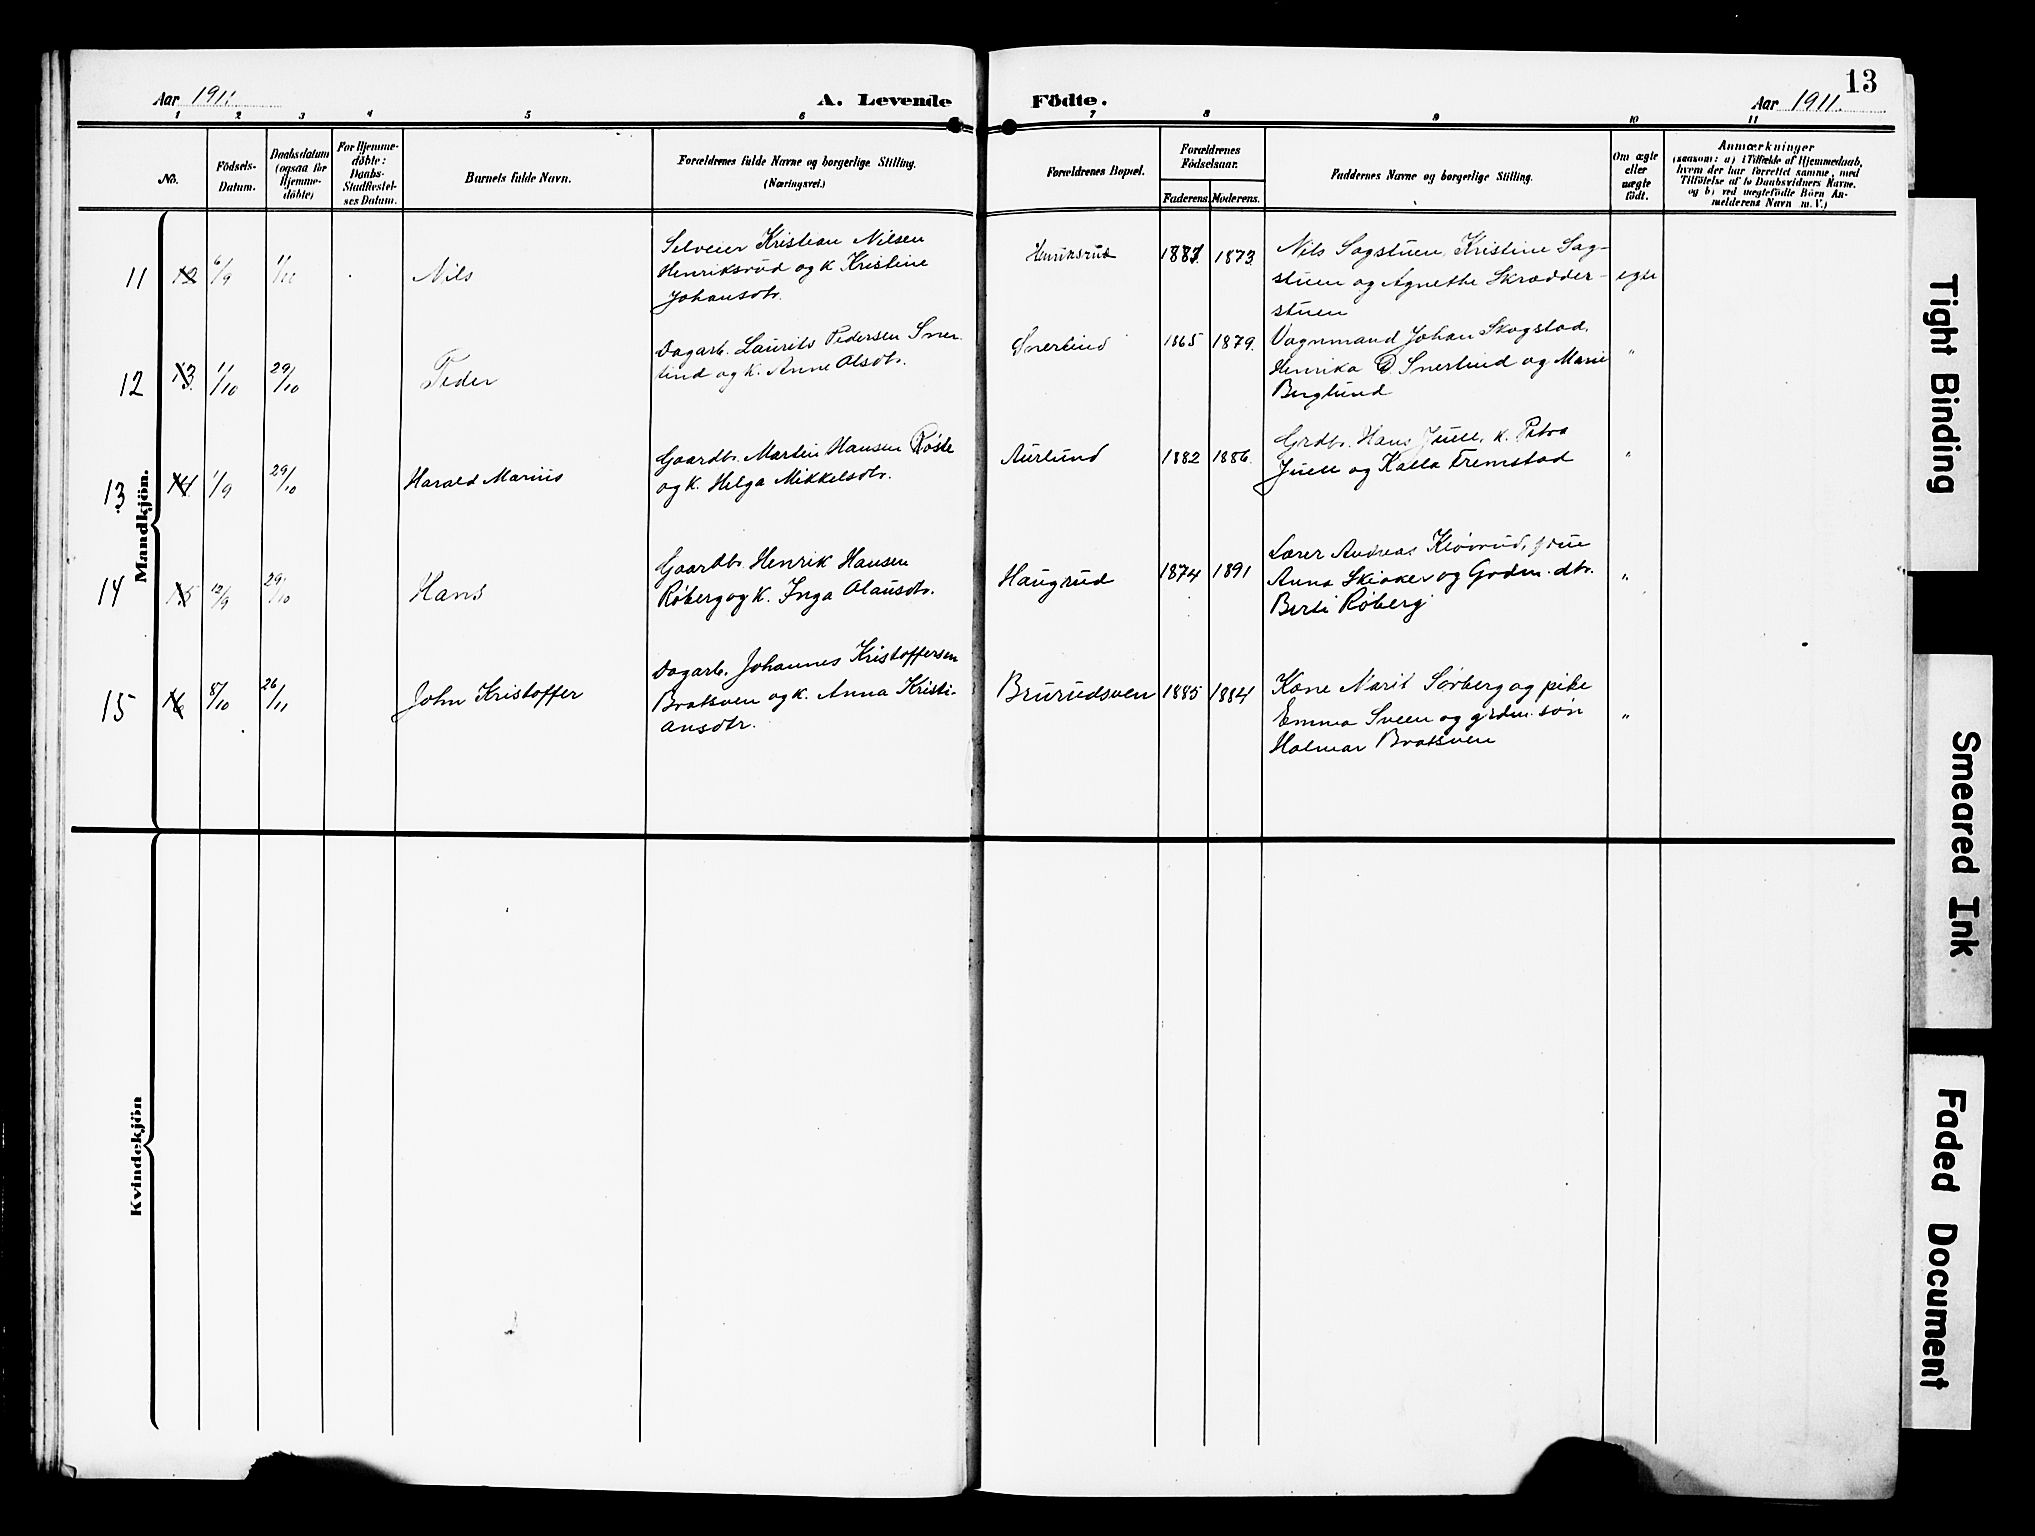 13
Aar 1911.
A. Levende Födte.
Aar 1911.
1 2 3 4 5 6 7 8 9 10 11
No.
Födsels-
Datum.
Daabsdatum
(ogsaa for
Hjemme-
döbte)
For Hjemme-
döbte:
Daabs-
Stadfæstel-
ses Datum.
Barnets fulde Navn.
Forældrenes fulde Navne og borgerlige Stilling.
(Næringsvei.)
Forældrenes Bopæl.
Forældrenes
Födselsaar.
Faderens. Moderens.
Faddernes Navne og borgerlige Stilling.
Om ægte
eller
uægte
födt.
Anmærkninger
(saasom: a) i Tilfælde af Hjemmedaab,
hvem der har forrettet samme, med
Tilföielse af to Daabsvidners Navne.
og b) ved uægtefödte Börn An-
melderens Navn m. V.)
Mandkjön.
11 12 6/9 Nils
Selveier Kristian Nilsen
Henriksrud og k. Kristine
Johansdtr.
Henriksrud 1881. 1873.
Nils Sagstuen, Kristine Sag-
stuen og Agnethe Skrædder-
stuen
egte
12 13 11/10 29/10 Peder
Dagarb. Laurits Pedersen Sner-
lind og k. Anne Olsdtr.
Snerlind 1865 1879.
Vognmand Johan Skogstad,
Henrika D. Snerlind og Marie
Berglund
"
13 14 1/9 29/10 Harald Marius
Gaardbr. Martin Hansen Røste
og k. Helga Mikkelsdtr.
Aurlund 1882 1886.
Grdbr. Hans Juell, k. Petra
Juell og Kalla Fremstad
"
14 15 12/9 29/10 Hans
Gaardbr. Henrik Hansen
Røberg og k. Inga Olausdtr.
Haugrud 1874 1891
Lærer Andreas Kløvrud, frue
Anna Skiaker og Grdm. dtr.
Berte Røberg
"
15 16 8/10 26/11 John Kristoffer
Dagarb. Johannes Kristoffersen
Bratsven og k. Anna Kristi-
ansdtr.
Brurudsven 1885 1884
Kone Marit Sørberg og pike
Emma Sveen og grdm. søn
Halmar Bratsven
"
Kvindekjön
Tight Binding
Smeared Ink
Faded Document